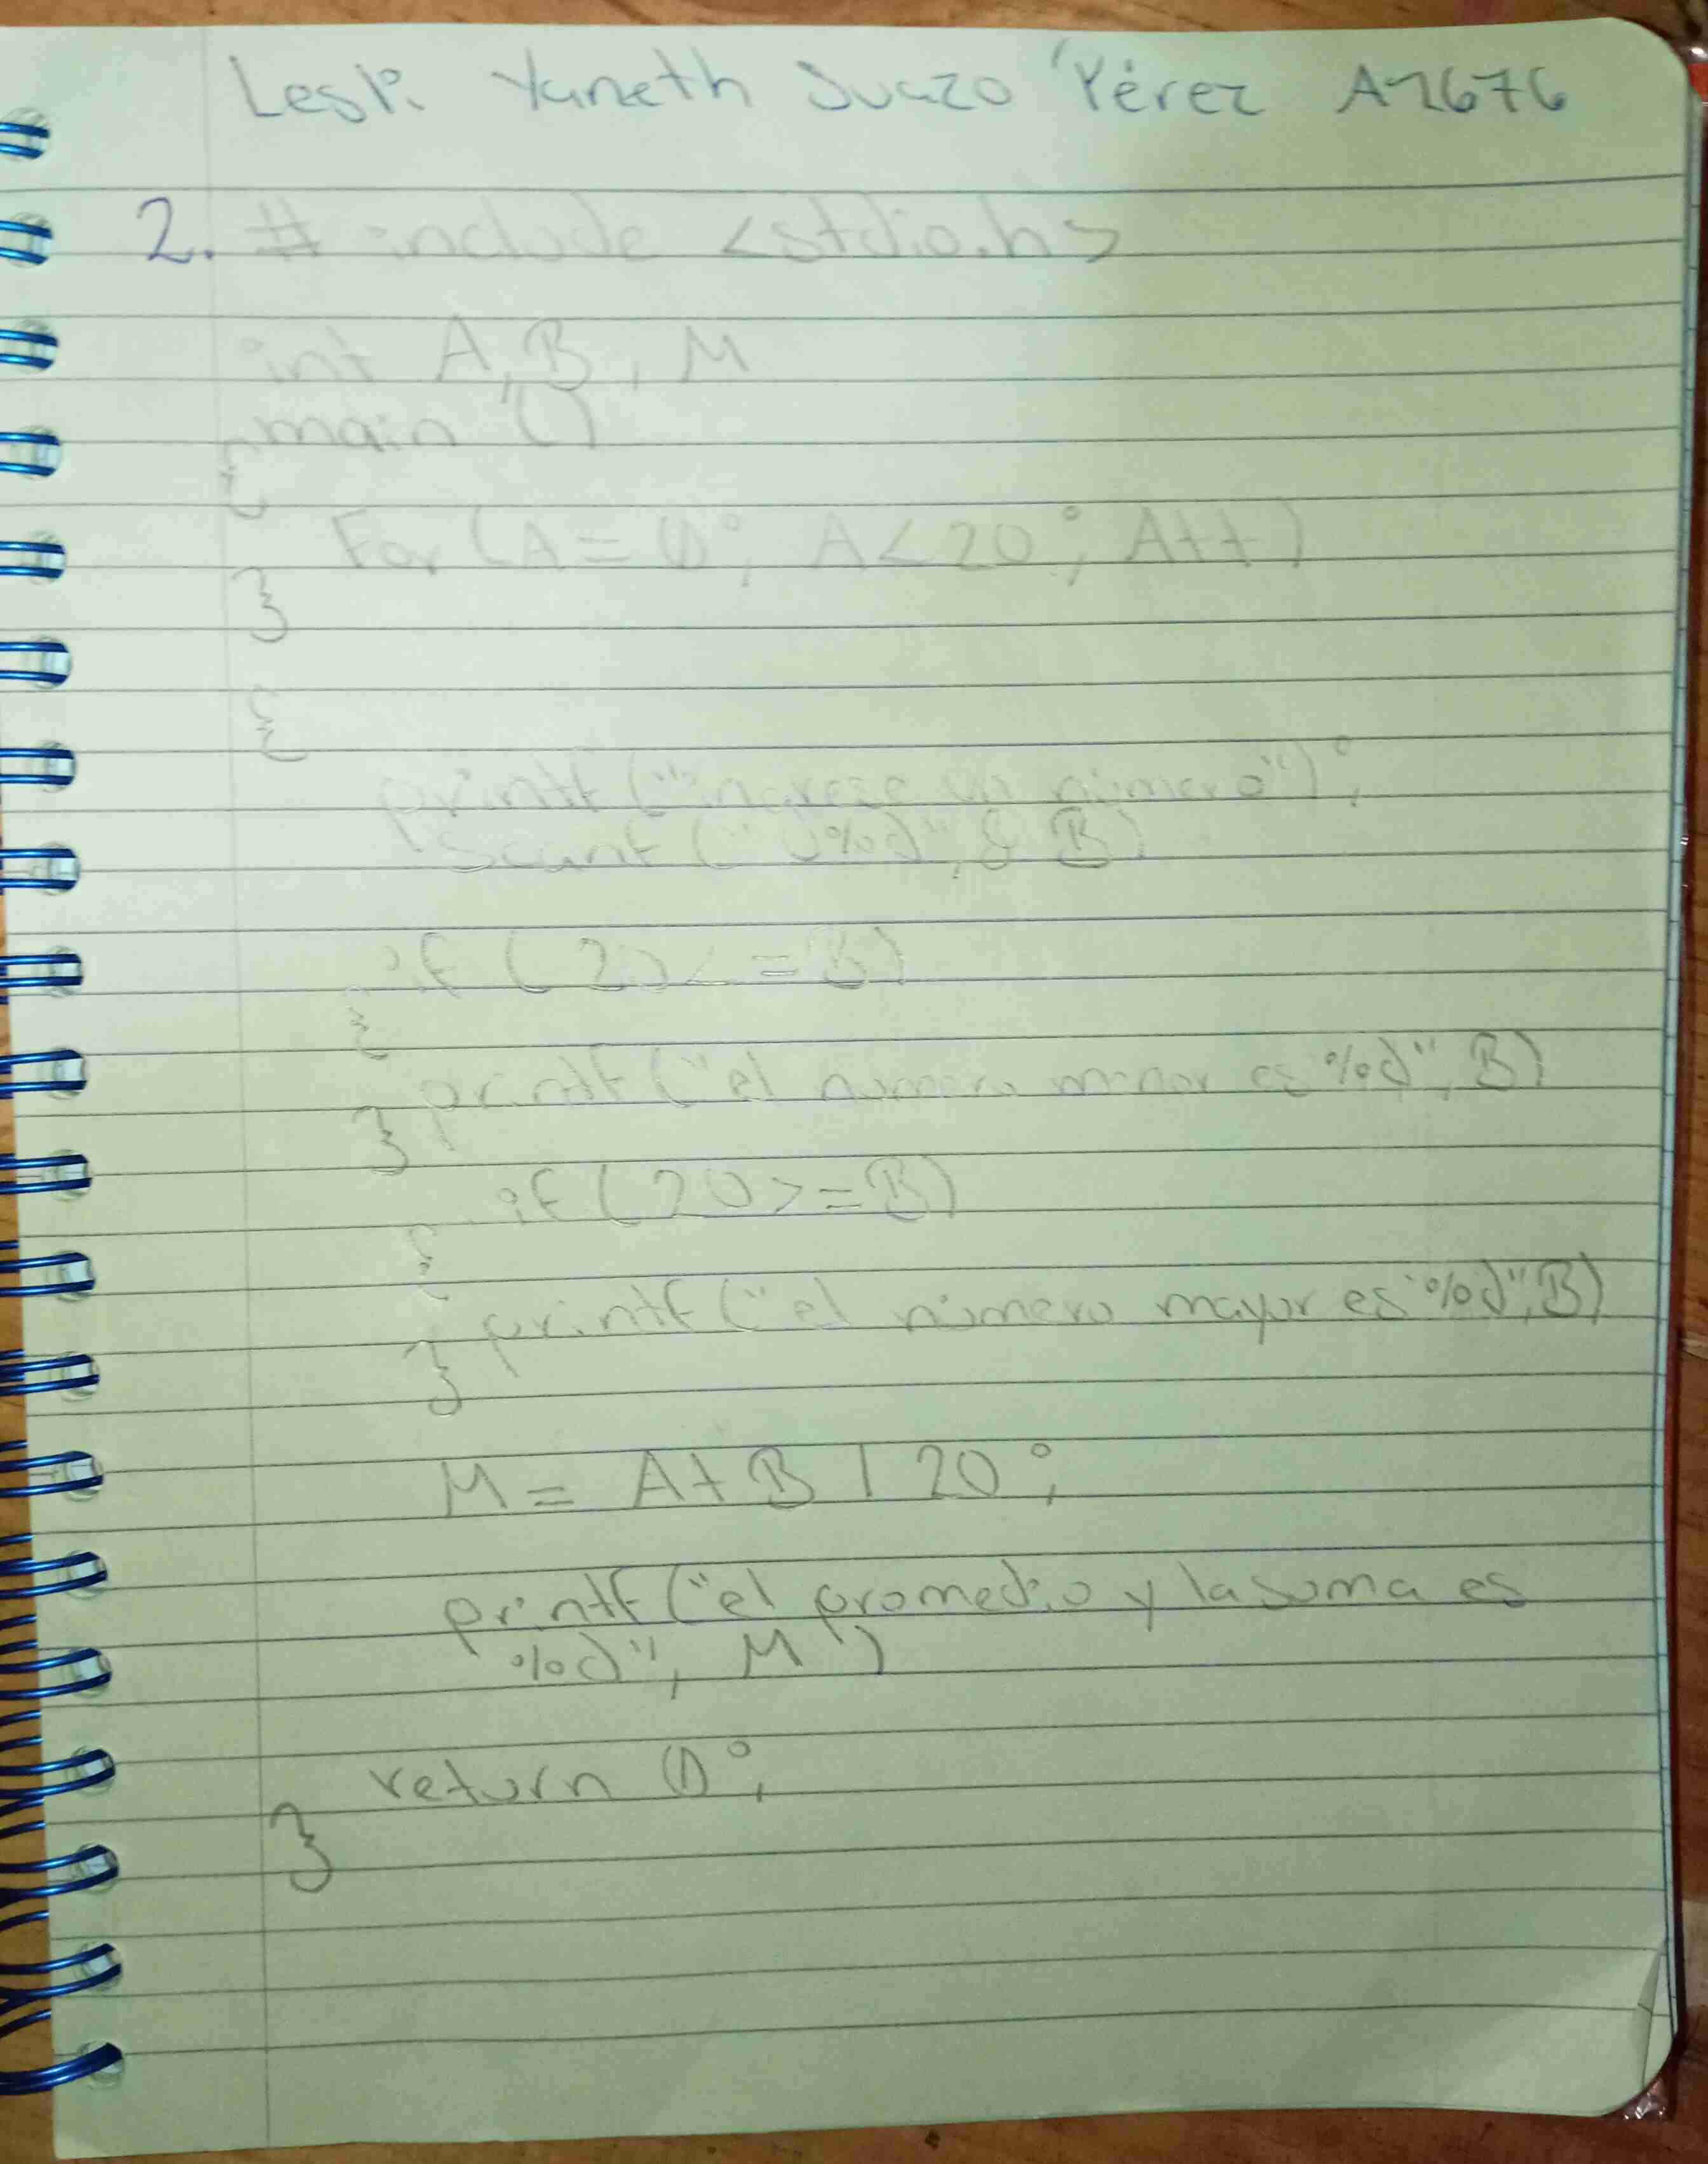 Lesli Yaneth Suazo Pérez A1676
2. # include <stdio.h>
int A, B, M
main ()
{
For (A = 0; A < 20; A++)
}
{
printf ("ingrese un número");
scanf ("%d", & B)
if (20 < = B)
{
printf ("el numero menor es %d", B)
}
if (20 > = B)
{
printf ("el número mayor es %d", B)
}
M = A + B / 20;
printf ("el promedio y la suma es
%d", M )
return 0;
}